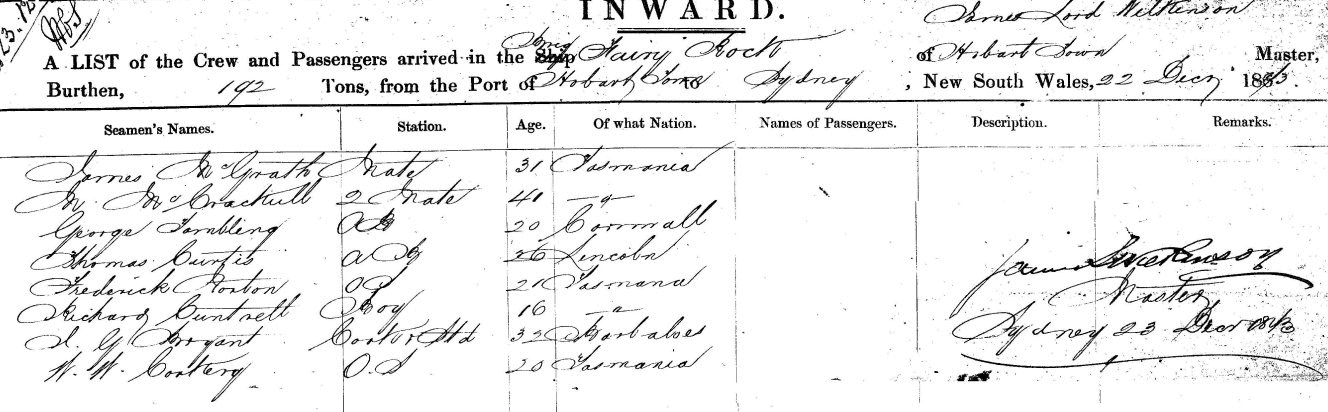 INWARD.
James Lord Wilkinson
A LIST of the Crew and Passengers arrived in the Ship Brig Fairy Rock of Hobart Town Master,
Burthen, 192 Tons, from the Port of Hobart Town to Sydney , New South Wales, 22 Decr 18
Seamen's Names. Station. Age. Of what Nation. Names of Passengers. Description. Remarks.
James McGrath Mate 31 Tasmania
M. McCrackull 2 Mate 41 —"—
George Tambling AB 20 Cornwall
Thomas Curtis AB 26 Lincoln
Frederick Horton OS 21 Tasmana
Richard Cuntrell Boy 16 —"—
G Bryant Cook & Std 32
W. W. Corkery O.S 20 Tasmania
James L Wilkinson
Master
Sydney 23 Decr